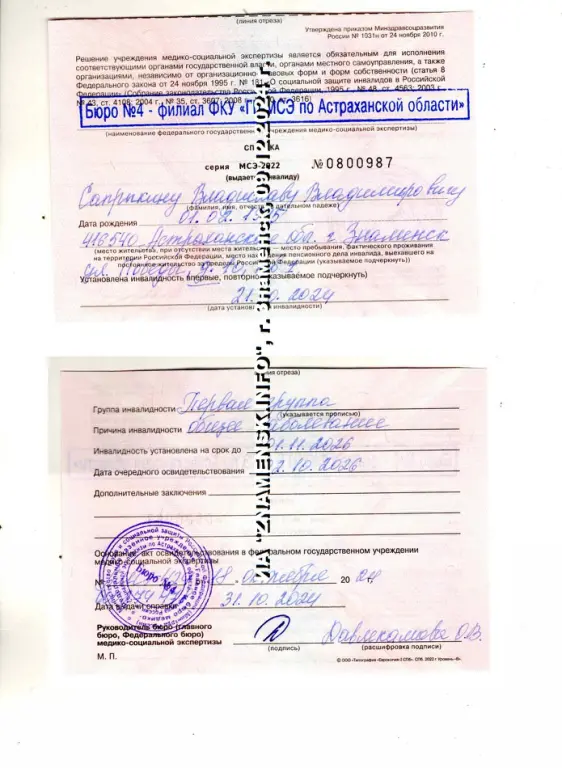 (линия отреза)
Утверждена приказом Минздравсоцразвития
России № 1031н от 24 ноября 2010 г.
Решение учреждения медико-социальной экспертизы является обязательным для исполнения
соответствующими органами государственной власти, органами местного самоуправления, а также
организациями, независимо от организационно-правовых форм и форм собственности (статья 8
Федерального закона от 24 ноября 1995 № 181 "О социальной защите инвалидов в Российской
Федерации» (Собрание законодательства Российской Федерации, 1995, № 48, ст. 4563; 2003,
№ 43, ст. 4108; 2004 г., № 35, ст. 3607; 2008
Бюро №4 - филиал ФКУ «ГБ МСЭ по Астраханской области»
(наименование федерального государственного учреждения медико-социальной экспертизы)
СПРАВКА
серия МСЭ-2022 №0800987
(выдается инвалиду)
Владиславу Владимировичу
(фамилия, имя, отчество в дательном падеже)
Дата рождения 01.02.
416540 Астраханская обл г. Знаменск
(место жительства, при отсутствии места жительства — место пребывания, фактического проживания
на территории Российской Федерации, место нахождения пенсионного дела инвалида, выехавшего на
постоянное жительство за пределы Российской Федерации (указываемое подчеркнуть))
ул.
Установлена инвалидность впервые, повторно (указываемое подчеркнуть)
21.10.2024
(дата установления инвалидности)
(линия отреза)
Группа инвалидности Первая группа
(указывается прописью)
Причина инвалидности общее заболевание
Инвалидность установлена на срок до 01.11.2026
Дата очередного освидетельствования 02.10.2026
Дополнительные заключения
Основание: акт освидетельствования в федеральном государственном учреждении
медико-социальной экспертизы
№ от октября 20 24 г.
Дата выдачи справки 31.10.2024
Руководитель бюро (главного
бюро, Федерального бюро)
медико-социальной экспертизы
Давлекамова О.В.
(подпись) (расшифровка подписи)
М. П.
Бюро №4
ИА "ZNAMENSK.INFO", г. Знаменск 09.12.2024 г.